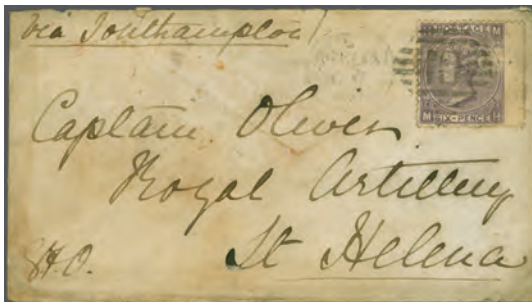 via Southampton
POSTAGE M
M SIX-PENCE H
Captain Oliver
Royal Artillery
St Helena